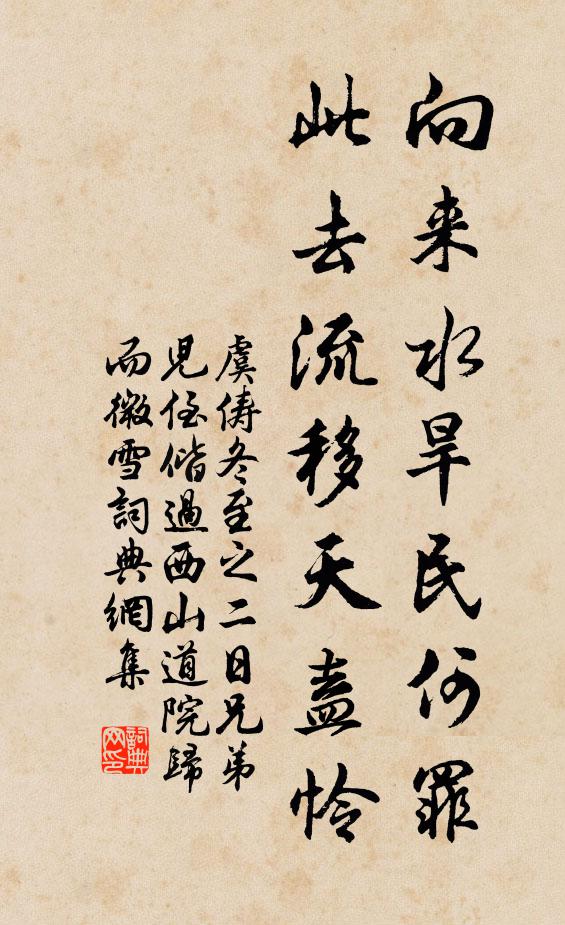 向来水旱民何罪
此去流移天盍怜
虞俦冬至之二日兄弟
児侄偕過西山道院歸
而微雪詞典網集
詞典网印